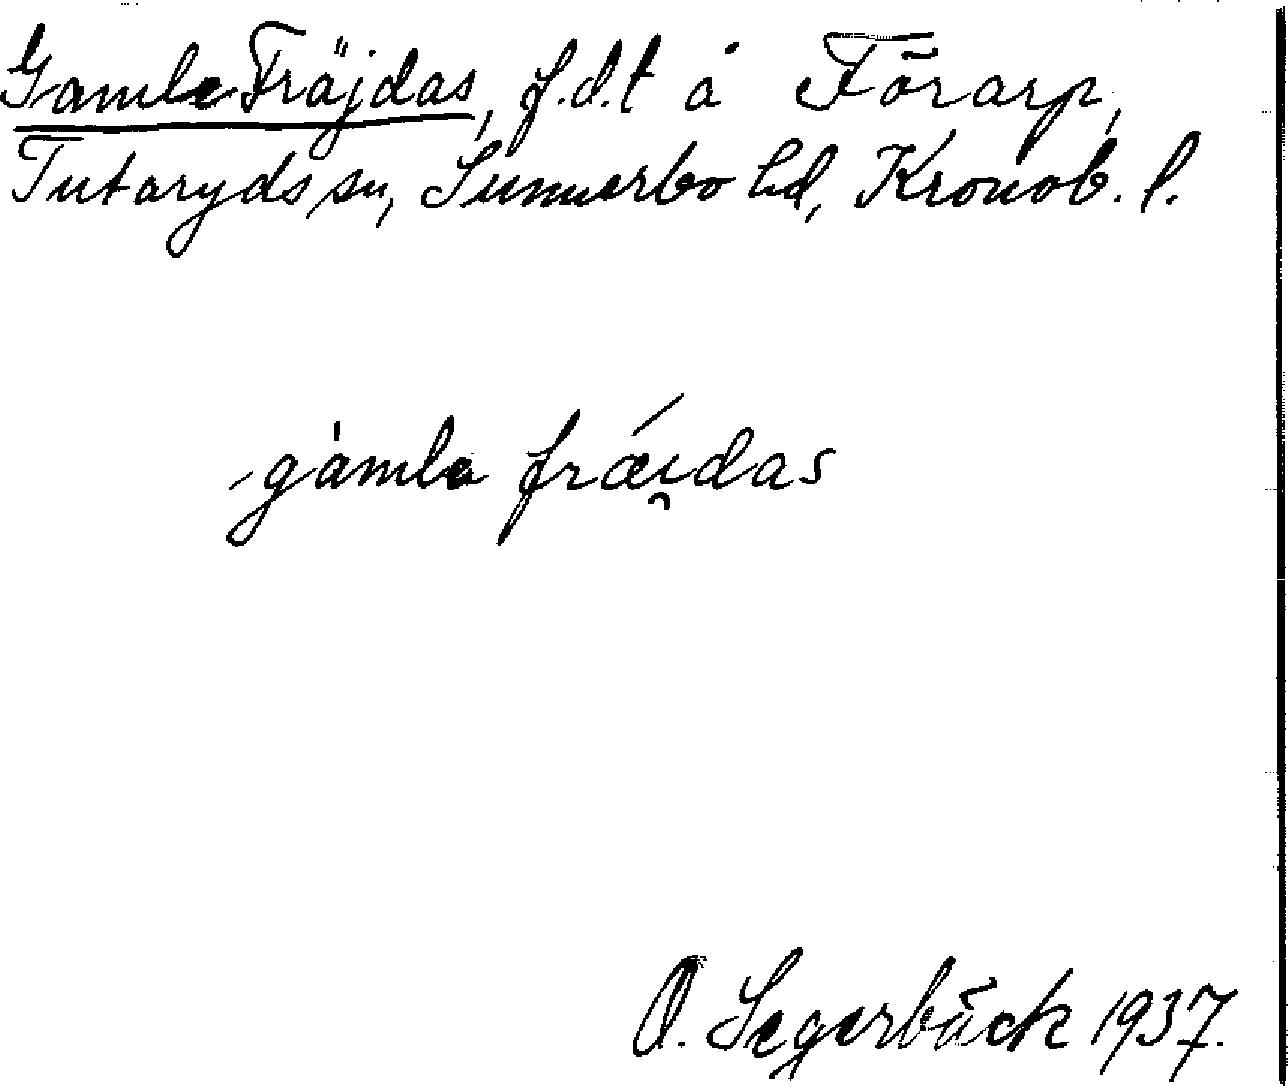 Gamle Fräjdas, f.d.t å Förarp,
Tutaryds sn, Sunnerbo hd, Kronob. l.
gàmlə fræ´i̯das
O. Segerbäck 1937.